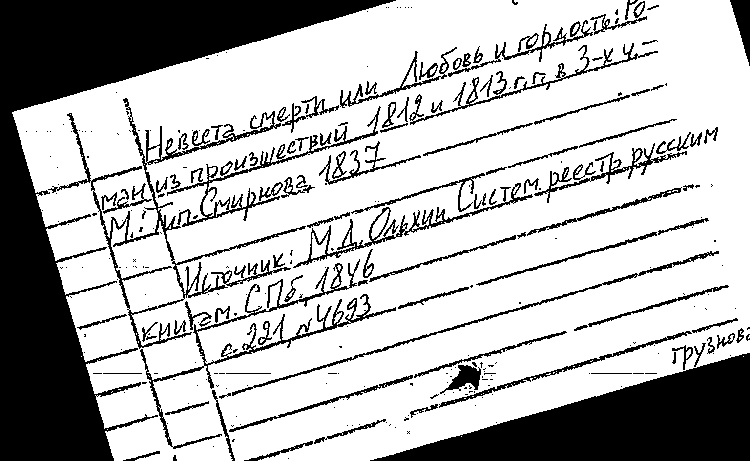 Невеста смерти или Любовь и гордость: Ро-
ман из произшествий 1812 и 1813 г.г., в 3-х ч. –
М.: Тип. Смирнова, 1837
Источник: М.Д. Ольхин. Систем. реестр русским
книгам. СПб, 1846
с. 221, №4693
Грузнова